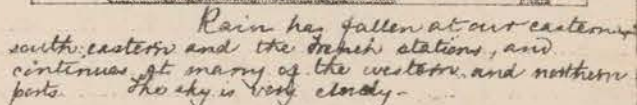 Rain has fallen at our eastern,
south eastern and the French stations, and
continues at many of the western and northern
ports. The sky is very cloudy -